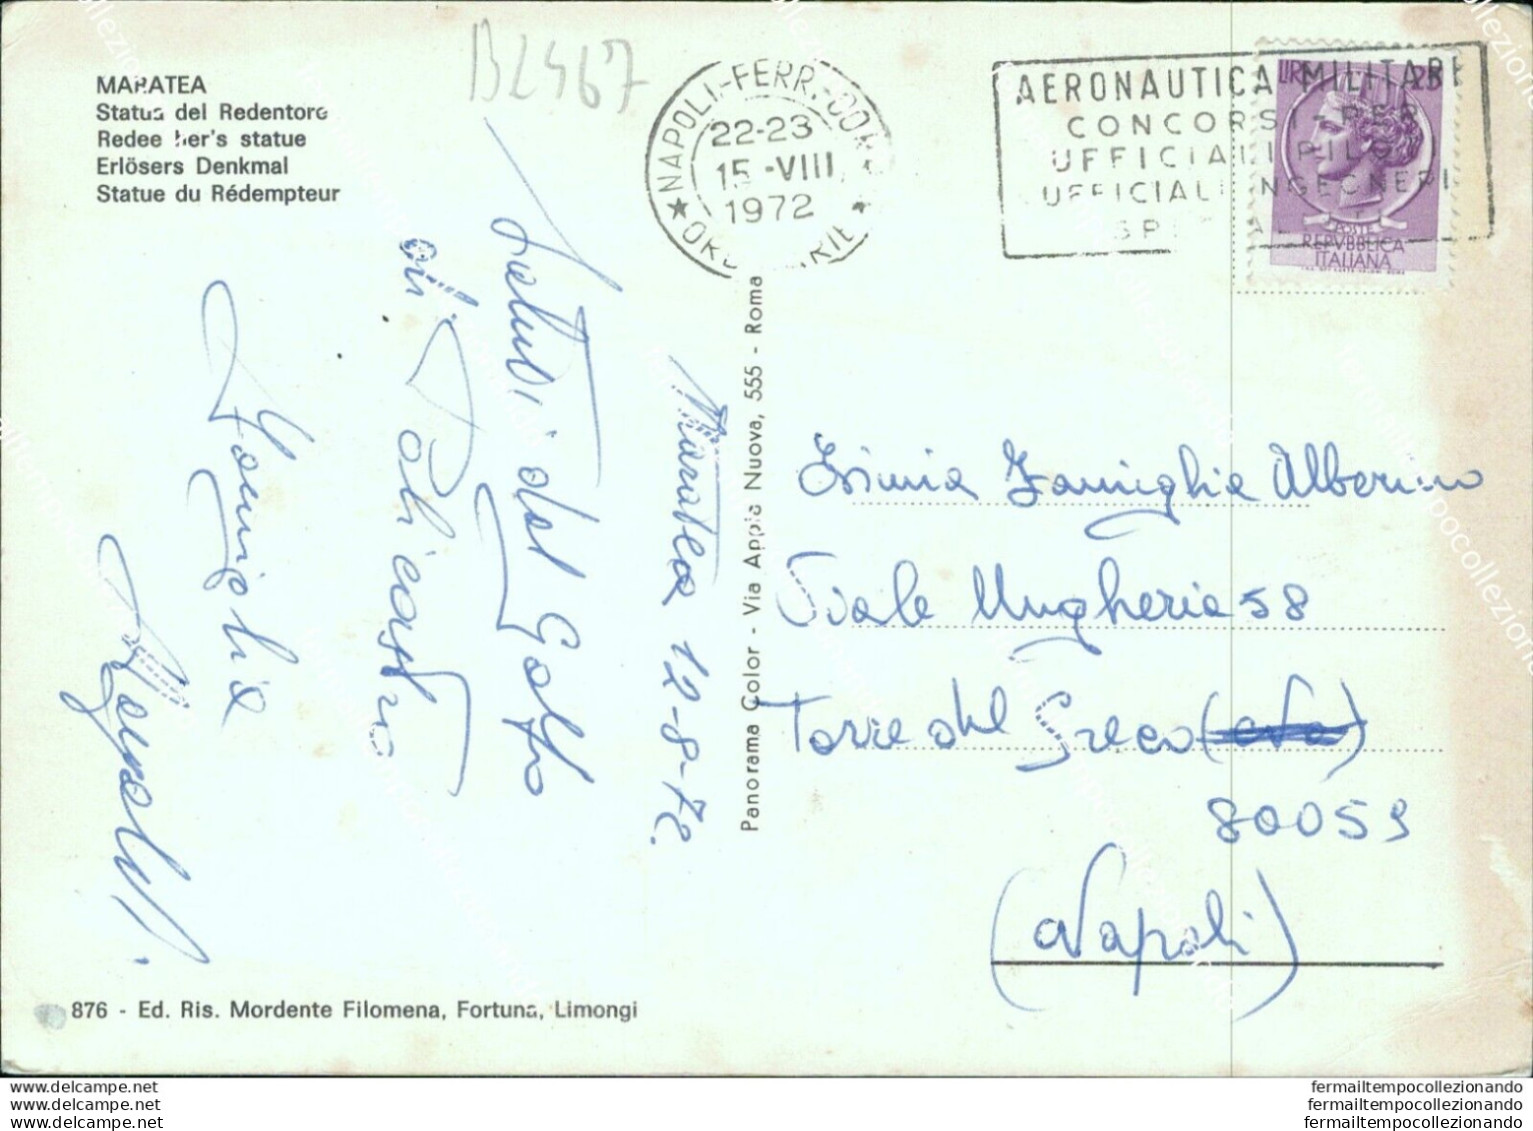 MARATEA
Statua del Redentore
Redee her's statue
Erlösers Denkmal
Statue du Rédempteur
B2567
NAPOLI-FERR.-CORR
22-23
15-VIII
1972
AERONAUTICA MILITARE
CONCORSI-PER
UFFICIALI PILO
UFFICIALI NGEGNERI
LIRE 25
POSTE
REPVBBLICA
ITALIANA
Maratea 12-8-72.
Saluti dal Golfo
di Policastro
Famiglia
Panorama Color - Via Appia Nuova, 555 - Roma
Esimia Famiglia Alberino
Viale Ungheria 58
Torre del Greco
80059
(Napoli)
876 - Ed. Ris. Mordente Filomena, Fortuna, Limongi
delcampe.net
delcampe.net
delcampe.net
fermailtempocollezionando
fermailtempocollezionando
fermailtempocollezionando